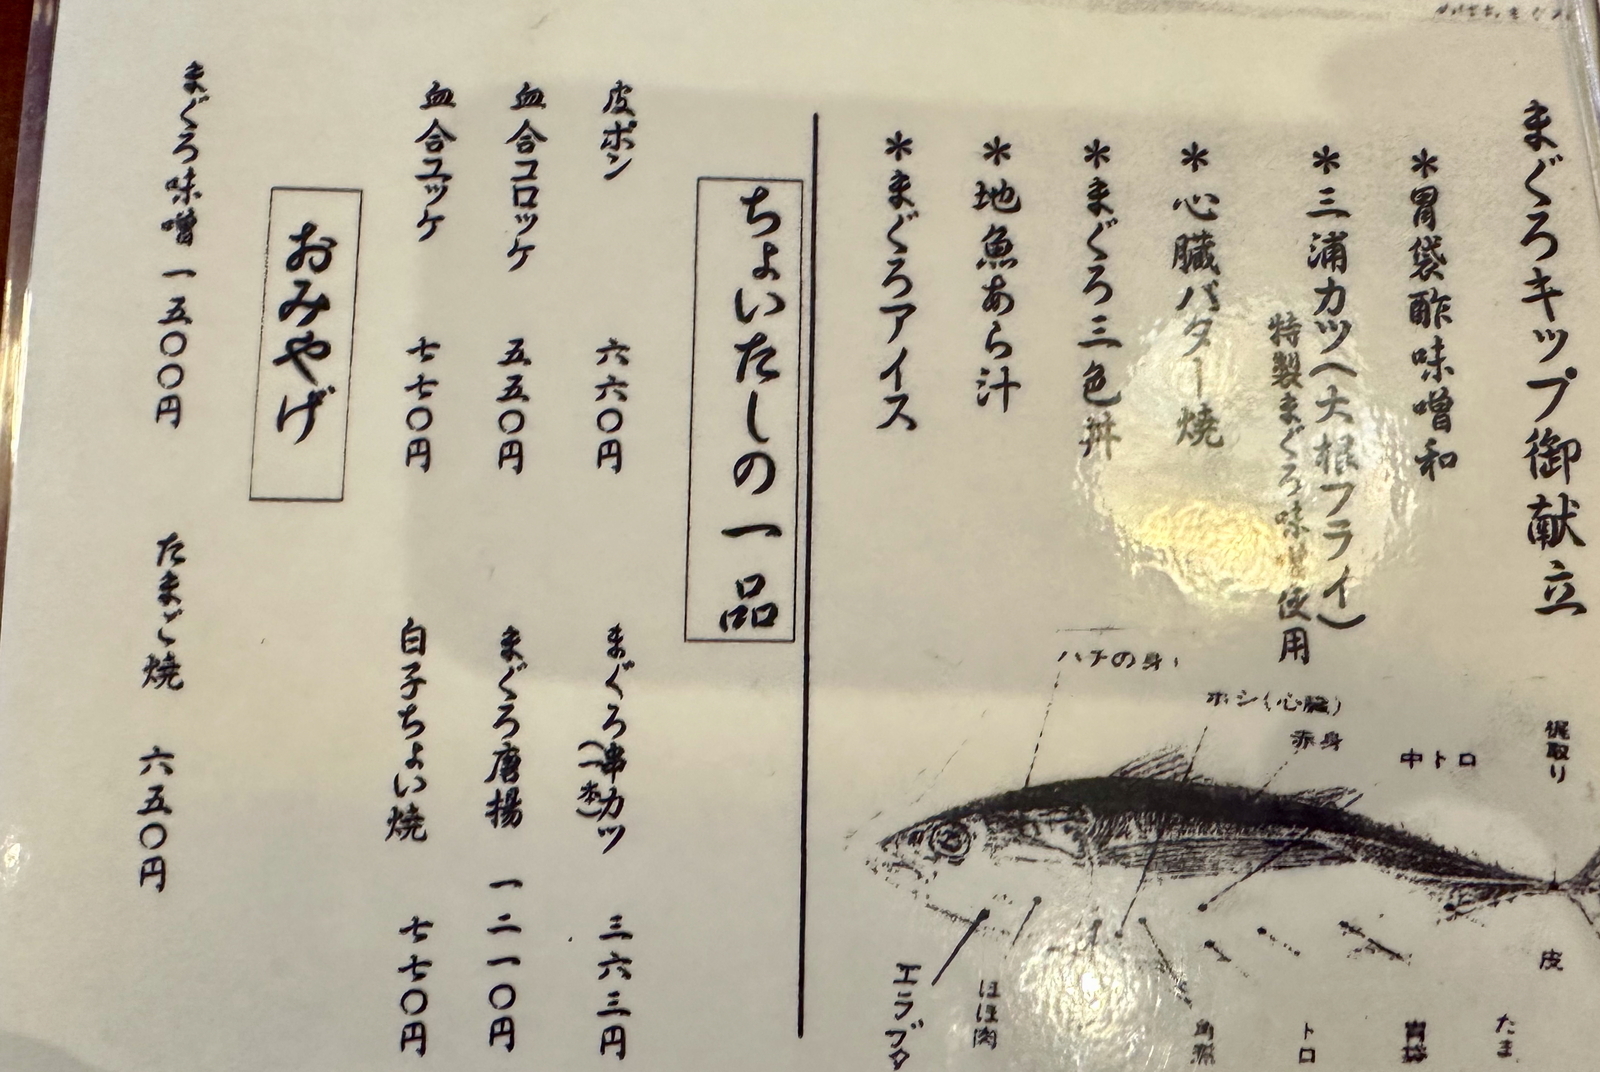 まぐろキップ御献立
＊胃袋酢味噌和
＊三浦カツ(大根フライ)
特製まぐろ味噌使用
＊心臓バター焼
＊まぐろ三色丼
＊地魚あら汁
＊まぐろアイス
ハチの身
ホシ(心臓)
赤身
中トロ
梶取り
エラブタ
ほほ肉
トロ
胃袋
たま
皮
ちょいたしの一品
皮ポン 六六〇円
まぐろ串カツ(一本) 三六三円
血合コロッケ 五五〇円
まぐろ唐揚 一二一〇円
血合ユッケ 七七〇円
白子ちょい焼 七七〇円
おみやげ
まぐろ味噌 一五〇〇円
たまご焼 六五〇円